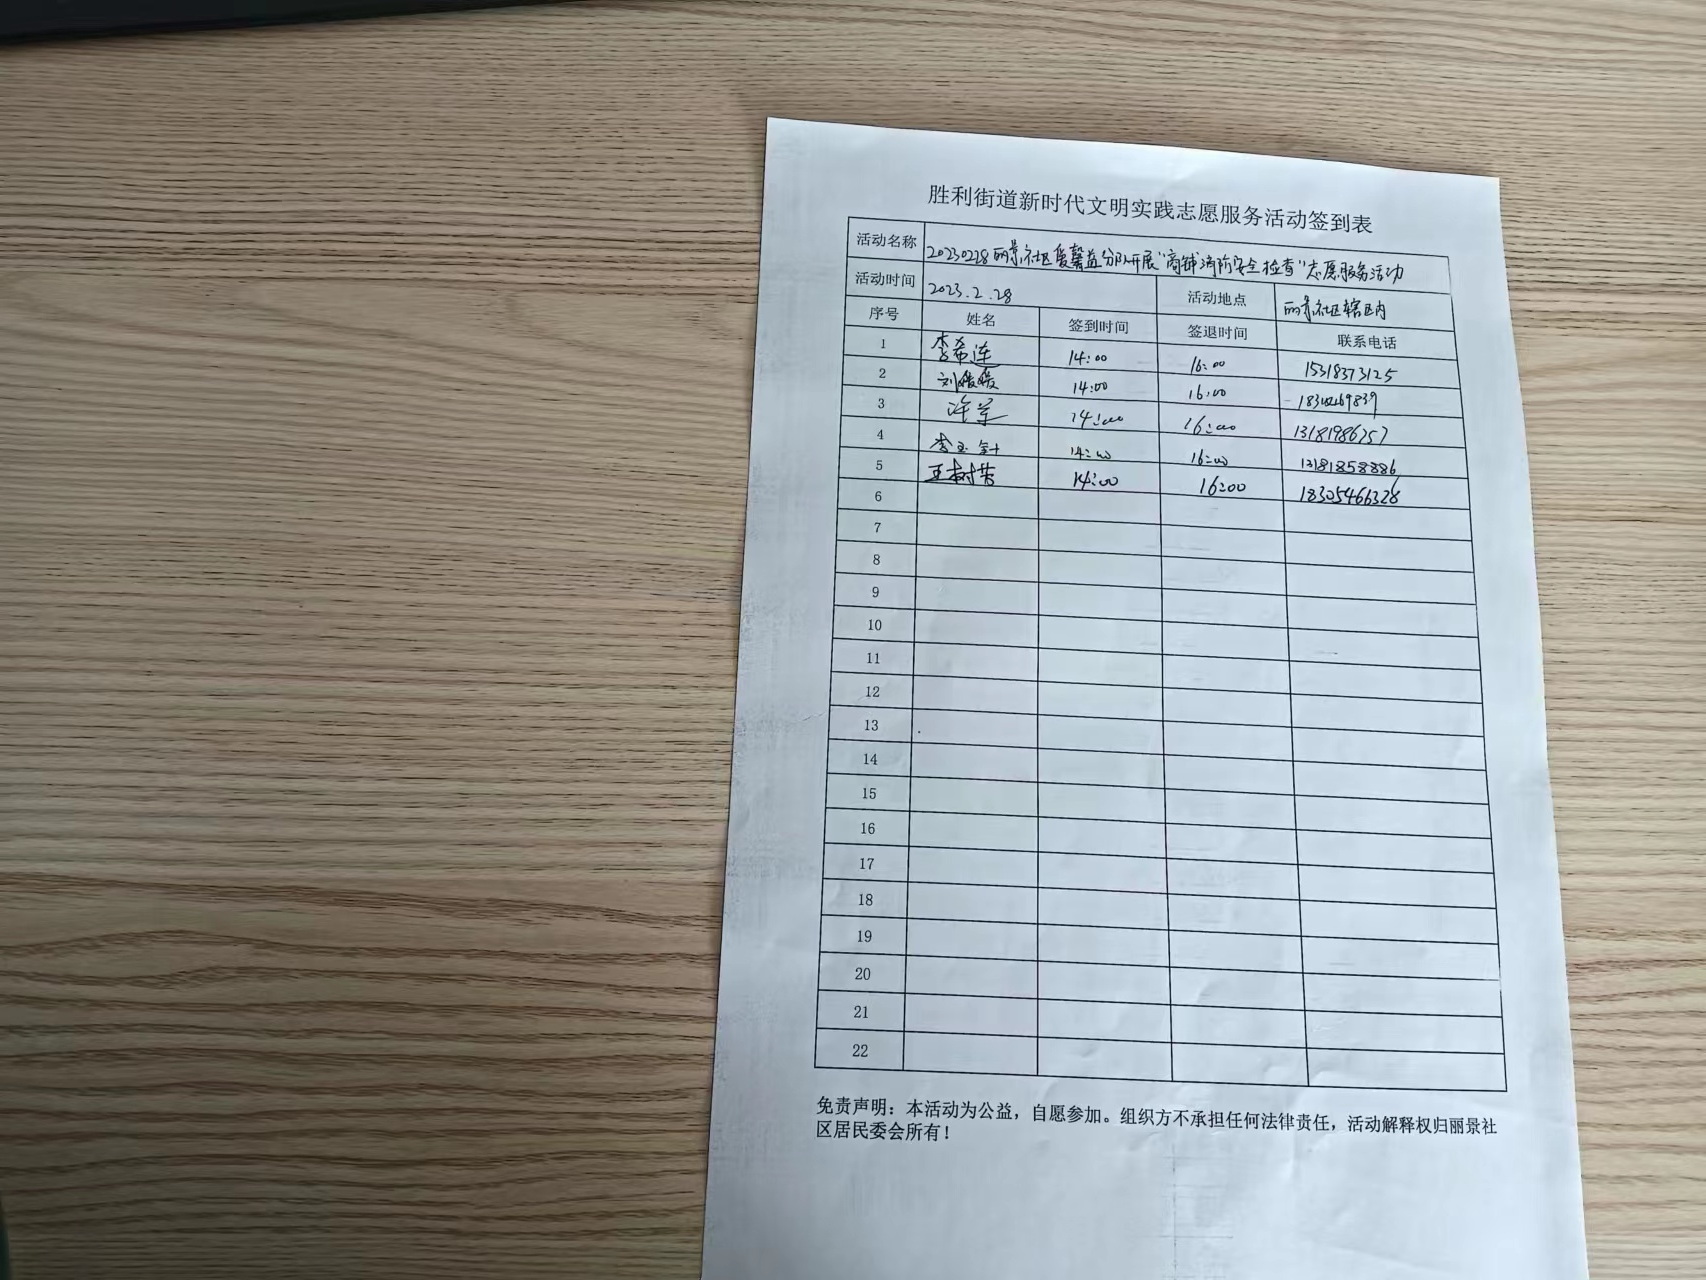 胜利街道新时代文明实践志愿服务活动签到表
活动名称 20230228丽景社区爱馨益分队开展“商铺消防安全检查”志愿服务活动
活动时间 2023.2.28 活动地点 丽景社区辖区内
序号 姓名 签到时间 签退时间 联系电话
1 李希连 14:00 16:00 15318373125
2 刘媛媛 14:00 16:00
3 许军 14:00 16:00 13181986757
4 李玉针 14:00 16:00 13181858886
5 王树芳 14:00 16:00 18305466328
6
7
8
9
10
11
12
13
14
15
16
17
18
19
20
21
22
免责声明：本活动为公益，自愿参加。组织方不承担任何法律责任，活动解释权归丽景社
区居民委会所有！